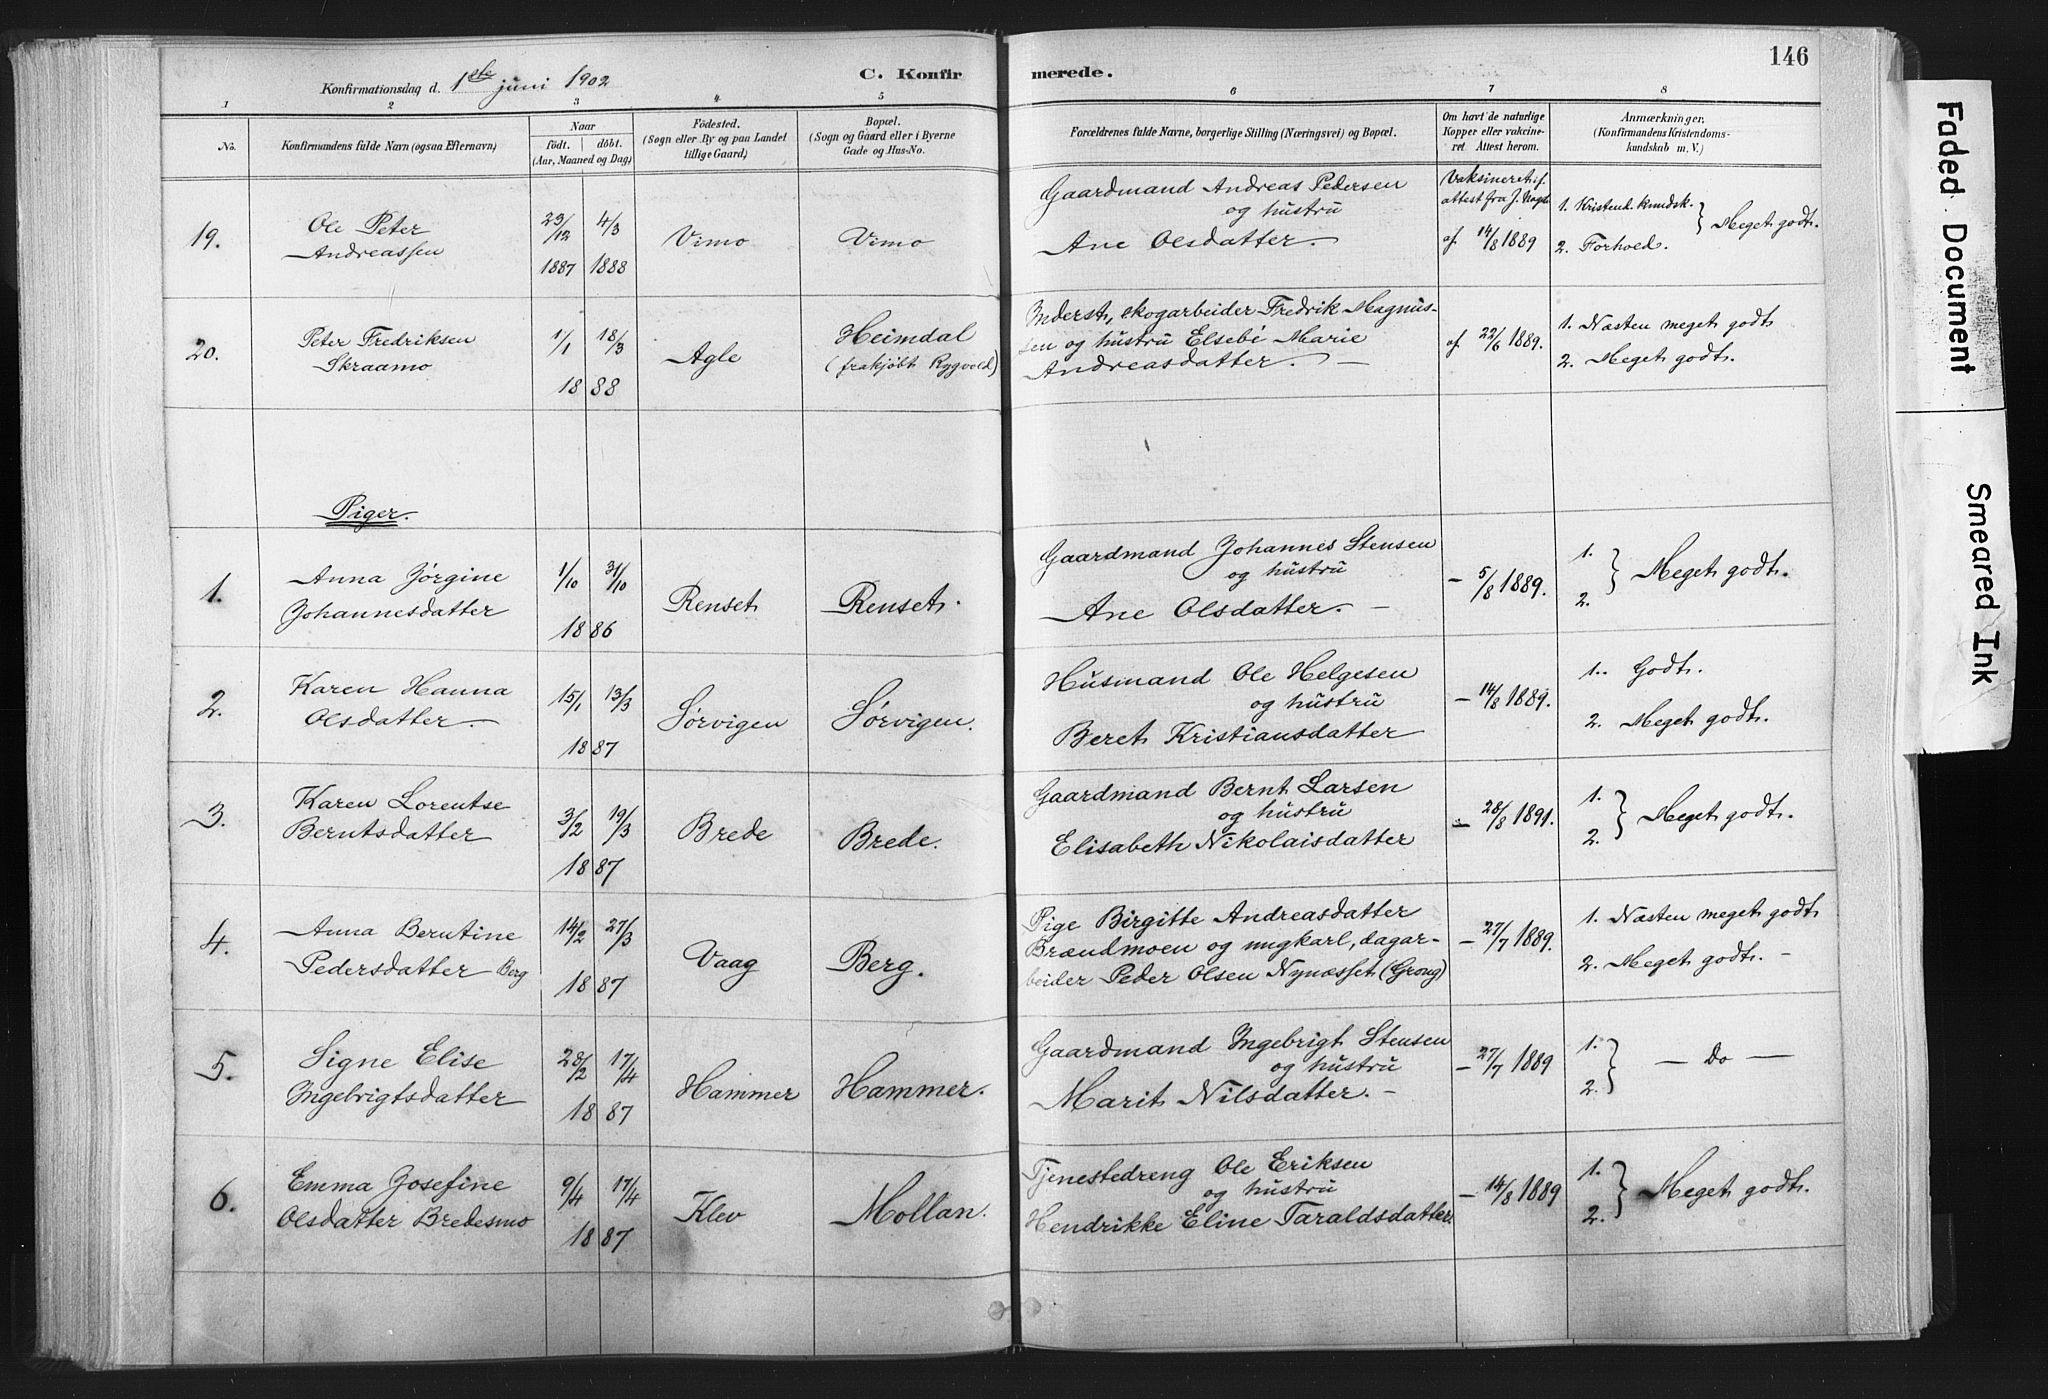 146
Konfirmationsdag d. 1ste juni 1902
C. Konfirmerede.
1 2 3 4 5 6 7 8
No.
Konfirmandens fulde Navn (ogsaa Efternavn)
Naar
født. | döbt.
(Aar, Maaned og Dag)
Födested.
(Sogn eller By og paa Landet
tillige Gaard)
Bopæl.
(Sogn og Gaard eller i Byerne
Gade og Hus-No.
Forældrenes fulde Navne, borgerlige Stilling (Næringsvei) og Bopæl.
Om havt de naturlige
Kopper eller vakcine-
ret. Attest herom.
Anmærkninger,
(Konfirmandens Kristendoms-
kundskab m. V.)
19.
Ole Peter
Andreassen
23/12 4/3
1887 1888
Vimo
Vimo
Gaardmand Andreas Pedersen
og hustru
Ane Olsdatter. -
Vaksineret if.
attest fra J. Nagel
af 14/8 1889
1. Kristend. kundsk. } Meget godt.
2. Forhold.
20.
Peter Fredriksen
Skraamo
1/1 18/3
1888
Agle
Heimdal
(frakjøbt Rygvold)
Inderst, skogarbeider Fredrik Magnus-
sen og hustru Elsebé Marie
Andreasdatter. -
af 22/6 1889.
1. Næsten meget godt
2. Meget godt.
Piger.
1.
Anna Jørgine
Johannesdatter
1/10 31/10
1886
Renset
Renset.
Gaardmand Johannes Stensen
og hustru
Ane Olsdatter. -
- 5/8 1889.
1.
2. } Meget godt.
2.
Karen Hanna
Olsdatter. -
15/1 13/3
1887
Sørvigen
Sørvigen.
Husmand Ole Helgesen
og hustru
Beret Kristiansdatter
- 14/8 1889.
1. Godt.
2. Meget godt.
3.
Karen Lorentse
Berntsdatter
3/2 19/3
1887
Brede
Brede.
Gaardmand Bernt Larsen
og hustru
Elisabeth Nikolaisdatter
- 28/8 1891.
1.
2. } Meget godt.
4.
Anna Berntine
Pedersdatter Berg
14/2 27/3
1887
Vaag
Berg.
Pige Birgitte Andreasdatter
Brændmoen og ungkarl, dagar-
beider Peder Olsen Nynæsset (Grong)
- 27/7 1889.
1. Næsten meget godt
2. Meget godt. -
5.
Signe Elise
Ingebrigtsdatter
28/2 17/4
1887
Hammer
Hammer.
Gaardmand Ingebrigt Stensen
og hustru
Marit Nilsdatter. -
- 27/7 1889
1.
2. } - Do -
6.
Emma Josefine
Olsdatter Bredesmo
9/4 17/4
1887
Klev
Mollan.
Tjenestedreng Ole Eriksen
og hustru
Hendrikke Eline Taraldsdatter.
- 14/8 1889
1.
2. } Meget godt.
Faded Document
Smeared Ink